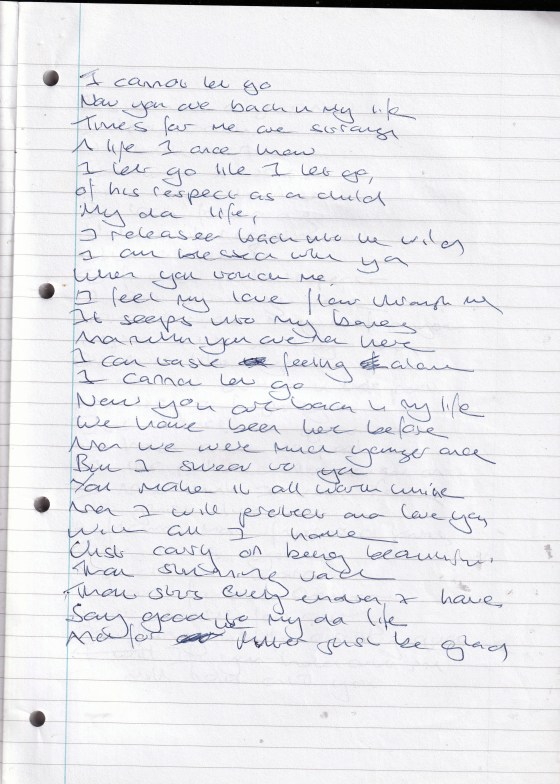 I cannot let go
Now you are back in my life
Times for me are strange
A life I once knew
I let go like I let go,
of his respect as a child
My old life,
I released back into the wild
I am blessed when you
When you touch me,
I feel my love flow through me
It seeps into my bones
And when you are not here
I can taste feeling alone
I cannot let go
Now you are back in my life
We have been here before
When we were much younger once
But I swear to ya
You make it all worth while
And I will protect and love you
With all I have
Just carry on being beautiful
That shining
That stirs every I have
Say good to my old life
And for just be glad